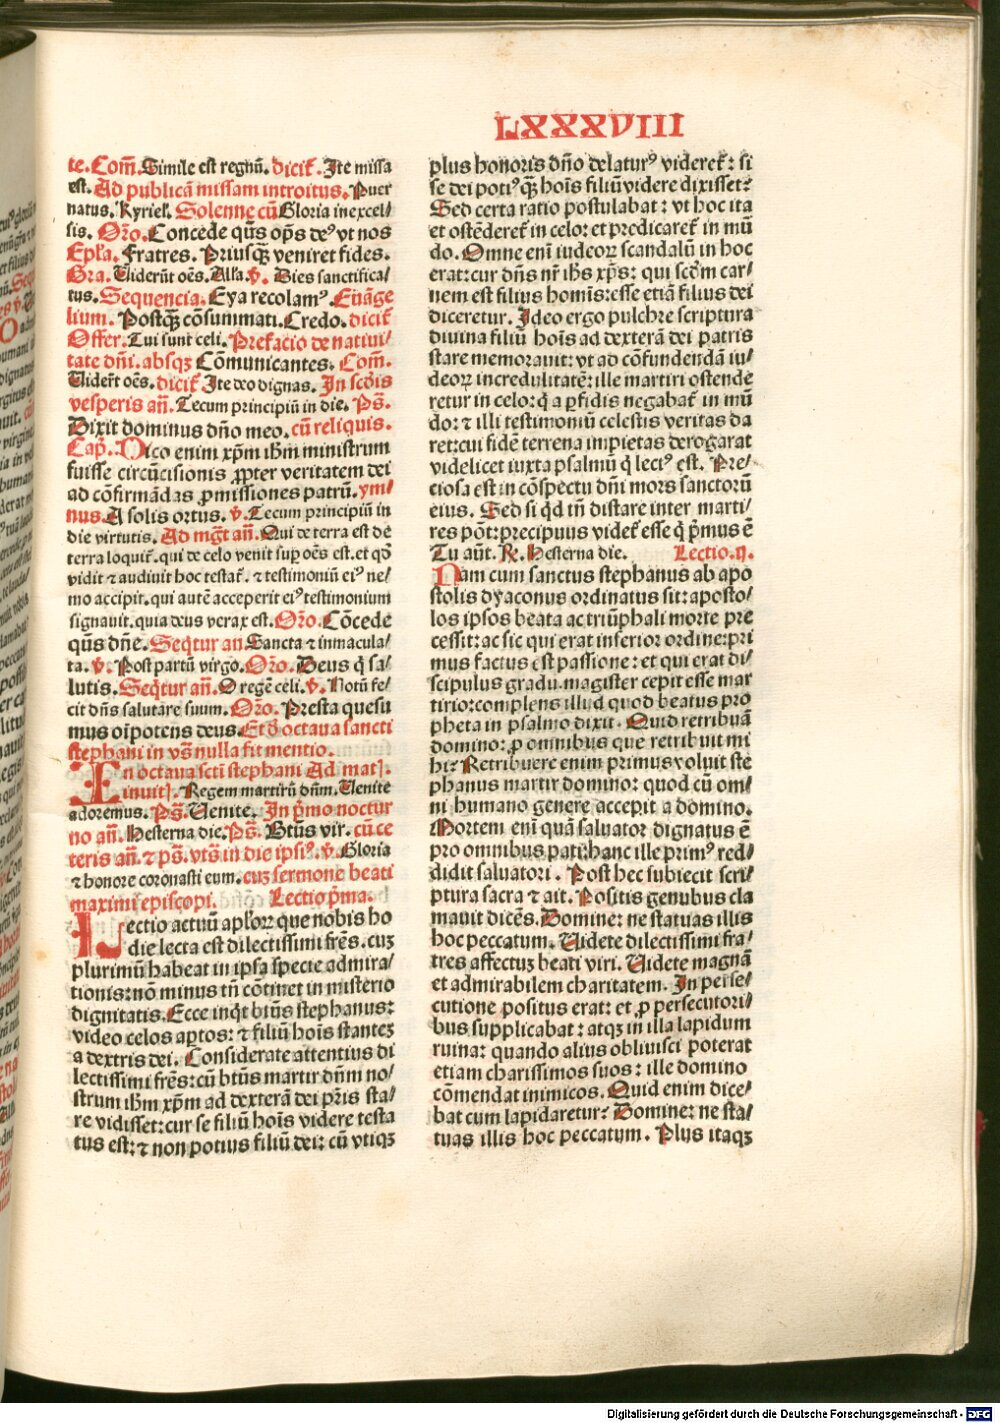 LXXXVIII
te. Com̄. Simile est regnū. dicit᷑. Ite missa
est. Ad publicā missam introitus. Puer
natus. Kyriel̕. Solenne cū Gloria in excel⸗
sis. Or̄o. Concede q̄us op̄s deꝰ vt nos
Ep̄la. Fratres. Priusq̄ꝫ veniret fides.
Gra. Viderūt oēs. Alła. v̄. Dies sanctifica⸗
tus. Sequencia. Eya recolamꝰ. Euāge
lium. Postq̄ꝫ cōsummati. Credo. dicit᷑
Offer. Tui sunt celi. Prefacio de natiui⸗
tate dn̄i. absqꝫ Cōmunicantes. Com̄.
Viderūt oēs. dicit᷑ Ite deo dignas. In scd̄is
vesperis an̄. Tecum principiū in die. Ps̄.
Dixit dominus dn̄o meo. cū reliquis.
Cap̄. Dico enim xp̄m ih̄m ministrum
fuisse circūcisionis ꝓpter veritatem dei
ad cōfirmādas ꝓmissiones patrū. ym⸗
nus. A solis ortus. v̄. Tecum principiū in
die virtutis. Ad mgt̄ an̄. Qui de terra est de
terra loquit᷑. qui de celo venit sup oēs est. et qd̄
vidit ⁊ audiuit hoc testat᷑. ⁊ testimoniū eiꝰ ne⸗
mo accipit. qui autē acceperit eiꝰ testimonium
signauit. quia deus verax est. Or̄o. Cōcede
q̄us dn̄e. Seq̄tur an̄ Sancta ⁊ inmacula⸗
ta. v̄. Post partū virgo. Or̄o. Deus q̄ sa⸗
lutis. Seq̄tur an̄. O regē celi. v̄. Notū fe⸗
cit dn̄s salutare suum. Or̄o. Presta quesu
mus oīpotens deus. Et d̄ octaua sancti
stephani in vs̄ nulla fit mentio.
In octaua scti stephani Ad matꝭ.
inuitꝭ. Regem martirū dn̄m. Venite
adoremus. Ps̄. Venite. In p̄mo noctur
no an̄. Hesterna die. Ps̄. Btūs vir. cū ce
teris an̄. ⁊ ps̄. vts̄ in die ipsiꝰ. v̄. Gloria
⁊ honore coronasti eum. cuꝫ sermone beati
maximi episcopi. Lectio p̄ma.
Lectio actuū apl̄oꝝ que nobis ho
die lecta est dilectissimi fr̄es. cuꝫ
plurimū habeat in ipsa specie admira⸗
tionis: nō minus tn̄ cōtinet in misterio
dignitatis. Ecce inq̄t btūs stephanus:
video celos aꝑtos: ⁊ filiū hoīs stanteꝫ
a dextris dei. Considerate attentius di
lectissimi fr̄es: cū btūs martir dn̄m no⸗
strum ih̄m xp̄m ad dexterā dei pr̄is sta⸗
re vidisset: cur se filiū hoīs videre testa
tus est: ⁊ non potius filiū dei: cū vtiqꝫ
plus honoris dn̄o delaturꝰ videret᷑: si
se dei potiꝰ q̄ꝫ hoīs filiū videre dixisset?
Sed certa ratio postulabat: vt hoc ita
et ostēderet᷑ in celo: et predicaret᷑ in mū
do. Omne eni iudeoꝝ scandalū in hoc
erat: cur dn̄s nr̄ ih̄s xp̄s: qui scd̄m car⸗
nem est filius hominis: esse etiā filius dei
diceretur. Ideo ergo pulchre scriptura
diuina filiū hoīs ad dexterā dei patris
stare memorauit: vt ad cōfundendā iu⸗
deoꝝ incredulitatē: ille martiri ostende
retur in celo: q̄ a ꝑfidis negabat᷑ in mū
do: ⁊ illi testimoniū celestis veritas da
ret: cui fidē terrena impietas derogarat
videlicet iuxta psalmū q̄ lectꝰ est. Pre⸗
ciosa est in cōspectu dn̄i mors sanctorū
eius. Sed si qd̄ tn̄ distare inter marti⸗
res pōt: precipuus videt᷑ esse q̄ p̄mus ē
Tu aūt. R̄. Hesterna die. Lectio.ij.
Nam cum sanctus stephanus ab apo
stolis dyaconus ordinatus sit: aposto⸗
los ipsos beata ac triūphali morte pre
cessit: ac sic qui erat inferior ordine: pri
mus factus est passione: et qui erat di⸗
scipulus gradu. magister cepit esse mar
tirio: complens illud quod beatus pro
pheta in psalmo dixit. Quid retribuā
domino: ꝓ omnibus que retribuit mi
hi? Retribuere enim primus voluit ste
phanus martir domino: quod cū om⸗
ni humano genere accepit a domino.
Mortem eni quā saluator dignatus ē
pro omnibus pati: hanc ille primꝰ red⸗
didit saluatori. Post hec subiecit scri⸗
ptura sacra ⁊ ait. Positis genubus cla
mauit dicēs. Domine: ne statuas illis
hoc peccatum. Videte dilectissimi fra⸗
tres affectuꝫ beati viri. Videte magnā
et admirabilem charitatem. In perse⸗
cutione positus erat: et ꝓ persecutori⸗
bus supplicabat: atqꝫ in illa lapidum
ruina: quando alius obliuisci poterat
etiam charissimos suos: ille domino
cōmendat inimicos. Quid enim dice⸗
bat cum lapidaretur? Domine: ne sta⸗
tuas illis hoc peccatum. Plus itaqꝫ
Digitalisierung gefördert durch die Deutsche Forschungsgemeinschaft - DFG